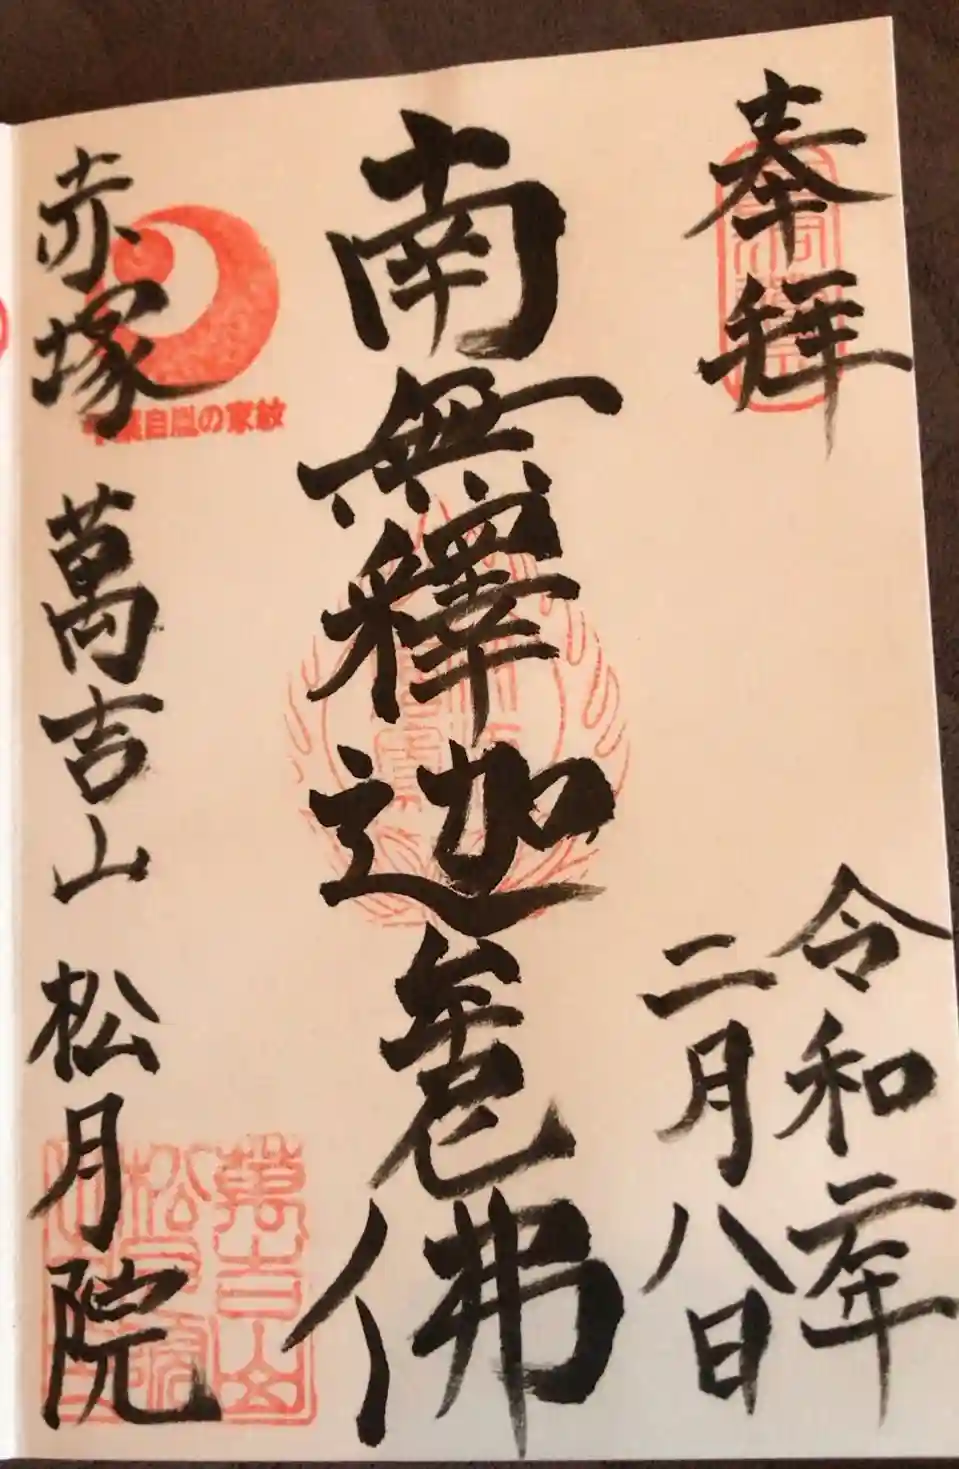 奉拜
令和二年
二月八日
南無釋迦牟尼佛
赤塚 萬吉山 松月院
千葉自胤の家紋
萬吉山
松月院